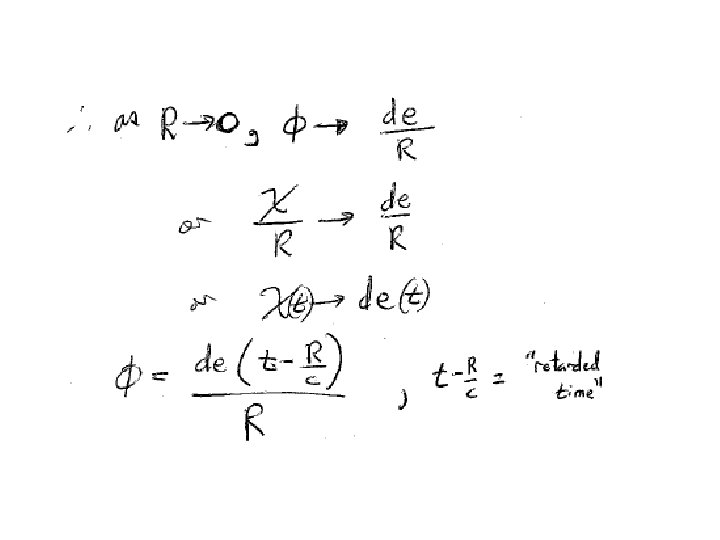 ∴ as R→0, ϕ → de/R
or χ/R → de/R
or χ(t) → de(t)
ϕ = de(t - R/c)/R , t - R/c = "retarded time"